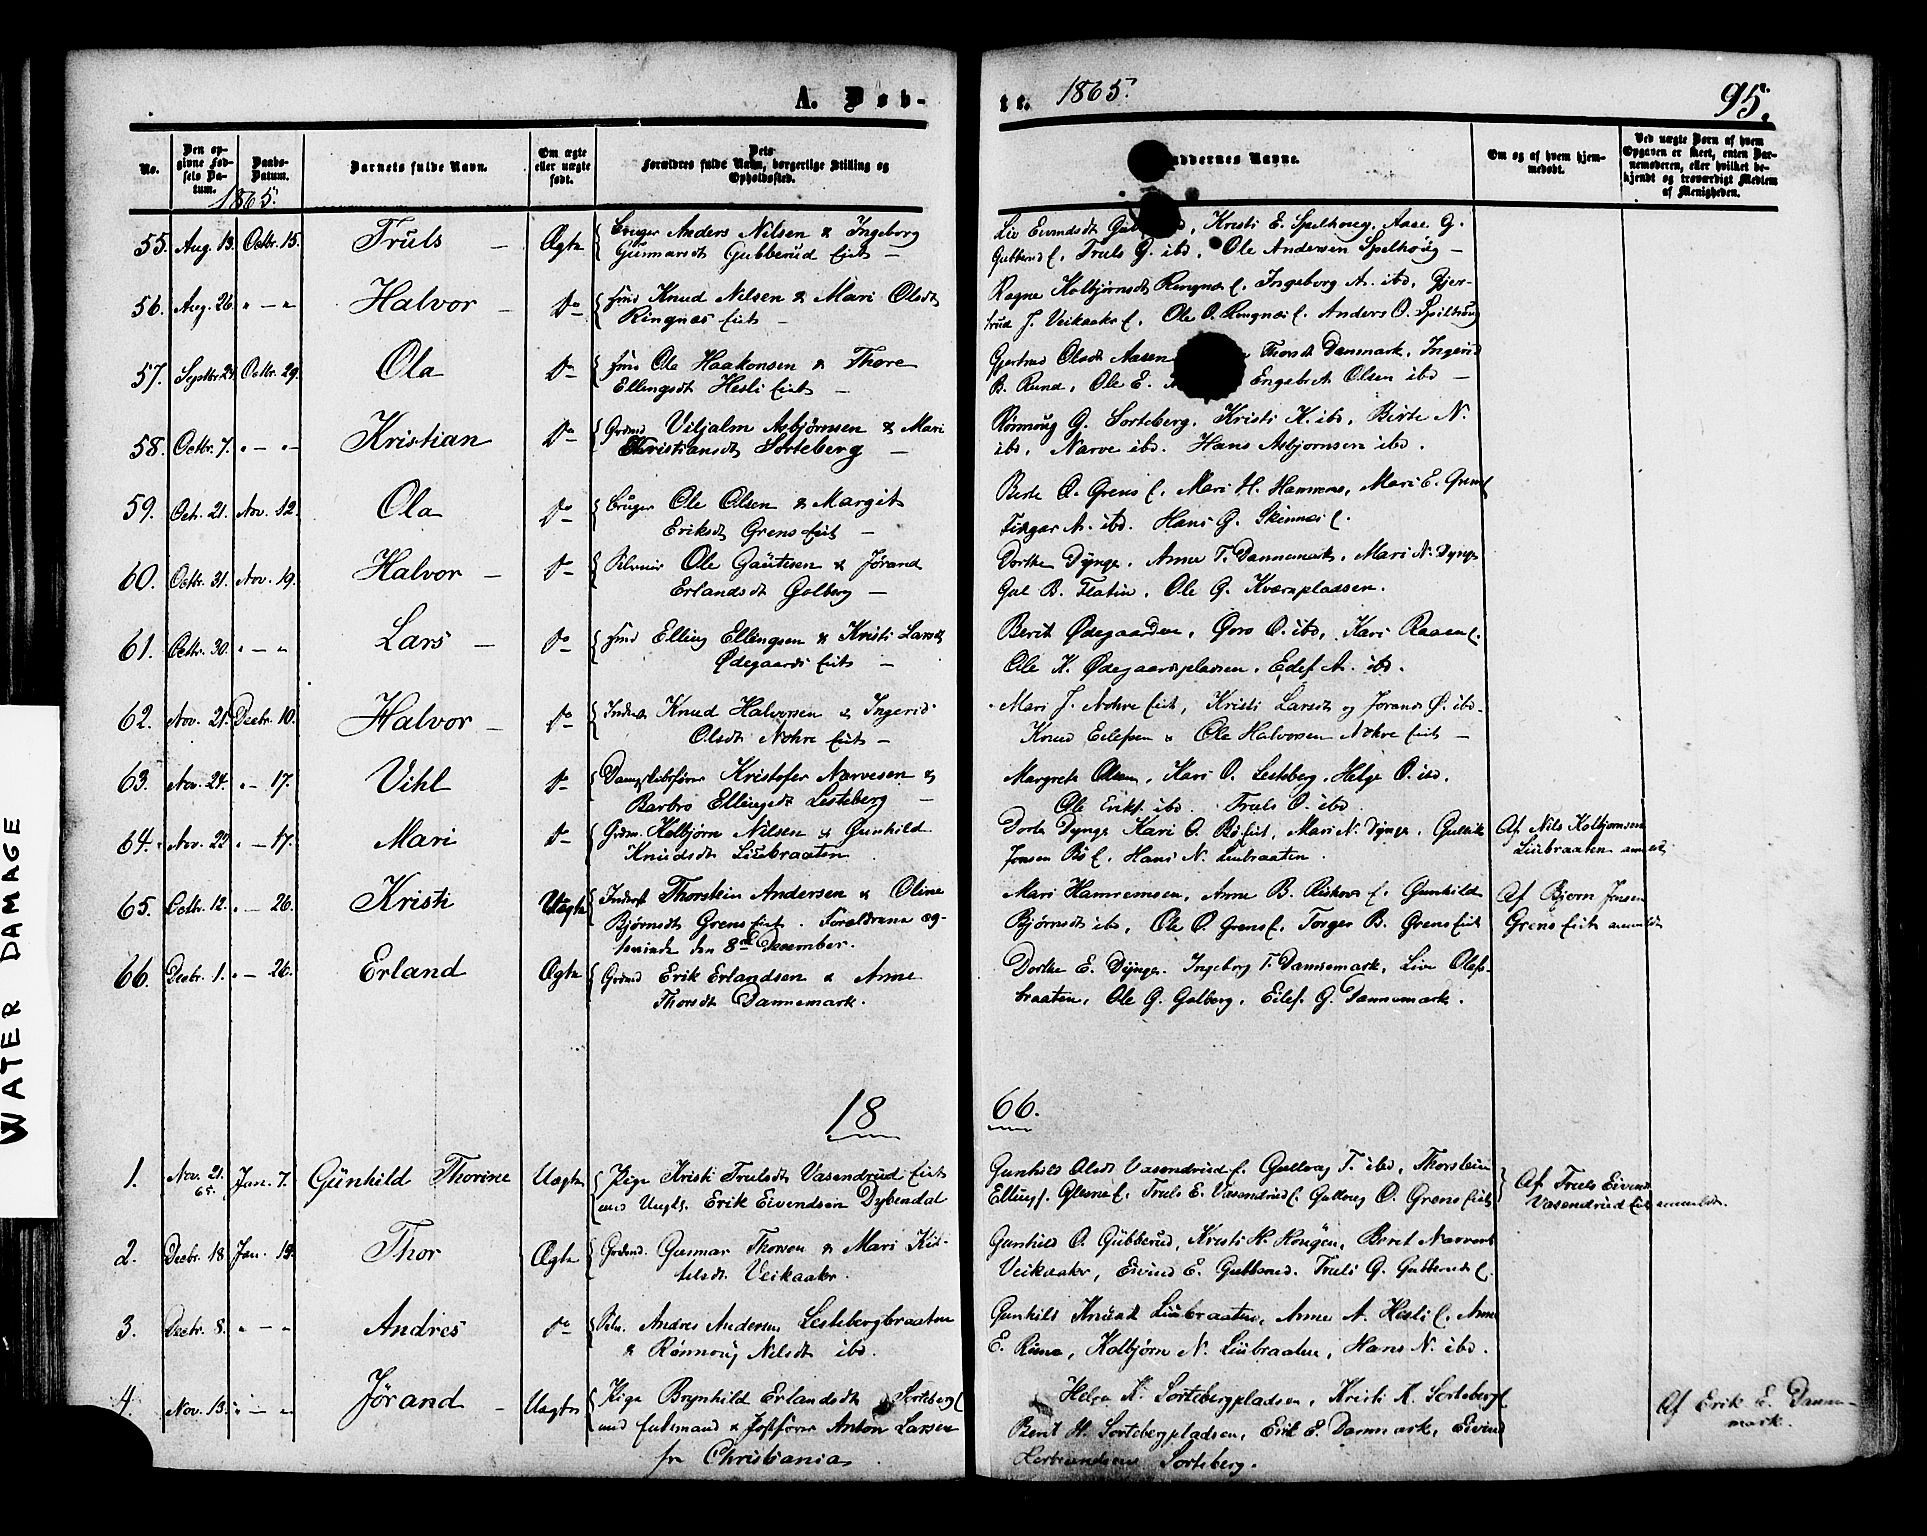 A. Døb-
te. 1865.
95.
No.
Den op-
givne Fød-
sels Da-
tum.
Daabs-
Datum.
Barnets fulde Navn.
Om ægte
eller uægte
født.
Dets
Forældres fulde Navn, borgerlige Stilling og
Opholdssted.
Faddernes Navne.
Om og af hvem hjem-
medøbt.
Ved uægte Børn af hvem
Opgaven er skeet, enten Bar-
nemoderen, eller hvilket be-
kjendt og troværdigt Medlem
af Menigheden.
1865.
55. Aug. 13. Octbr. 15. Truls – Ægte Bruger Anders Nilsen & Ingeborg
Gunnarsdt Gubberud Eiet –
Liv Eivindsdt Kristi E. Spelhoug, Aase G.
Gubberud E. Truls G. ibd. Ole Andersen Spelhoug –
56. Aug. 26. " – " Halvor – do Knud Nilsen & Mari Olsdt
Ringnæs Eiet –
Ragne Kolbjørnsdt Ringnæs E. Ingeborg A. ibd, Gjer-
trud J. Veikaaker E. Ole O. Ringnæs E. Anders O. Spelhoug
57. Septbr. Octbr. 29. Ola do Ole Haakonsen & Thore
Ellingsdt Hesli Eiet –
Gjertrud Olsdt Aasen Thorsdt Danmark, Ingerid
B. Rund, Ole E. Engebret Olsen ibd –
58. Octbr. 7. " – " Kristian do Grdmd Viljalm Asbjørnsen & Mari
Kristiansdt Sorteberg –
Rønnoug G. Sorteberg, Kristi K. ibd, Birte N.
ibd, Narve ibd. Hans Asbjørnsen ibd.
59. Octr. 21. Nov. 12. Ola do Bruger Ole Olsen & Margit
Eriksdt Grens Eiet –
Birte O. Grens E. Mari H. Hamrems, Mari E. Grens E
A. ibd. Hans G. Skinnes E.
60. Octbr. 31. Nov. 19. Halvor – do Ole Gautesen & Jørand
Erlandsdt Golberg –
Dorthe Dynge, Anne T. Dannemark, Mari N. Dynge
B. Flatin, Ole G. Kværnpladsen.
61. Octbr. 30. " – " Lars – do Elling Ellingsen & Kristi Larsdt
Ødegaards Eiet –
Berit Ødegaarden, Goro O. ibd, Kari Raaen E.
Ole K. Ødegaardspladsen, Edef A. ibd.
62. Nov. 21. Decbr. 10. Halvor – do Inderst Knud Halvorsen & Ingerid
Olsdt Nohre Eiet –
Mari J. Nohre Eiet, Kristi Larsdt og Jørand Ø. ibd.
Knud Eilefsen & Ole Halvorsen Nohre Eiet –
63. Nov. 24. " – 17. Vihl do Kristofer Narvesen &
Barbro Ellingsdt Lesteberg –
Margrete Olsen, Kari O. Lesteberg, Helge O. ibd.
Ole Eriks. ibd. Truls O. ibd.
64. Nov. " – 17. Mari do Grdm. Kolbjørn Nilsen & Gunhild
Knudsdt Liubraaten
Dorte Dynge Kari O. Bø Eiet, Mari N. Dynge, Gullik
Jonsen Bø E. Hans N. Liubraaten.
Af Nils Kolbjørnsen
Liubraaten anmeldt
65. Octbr. 12. " – 26. Kristi Uægte Inderst Thorstein Andersen & Oline
Bjørnsdt Grens Eiet. Forældrene æg-
teviede den 8de December.
Mari Hamremoen, Anne B. E. Gunhild
Bjørnsdt ibd, Ole O. Grens E. Torger B. Grens Eiet
Af Bjørn Jensen
Grens Eiet anmeldt
66. Decbr. 1. " – 26. Erland Ægte Grdmd Erik Erlandsen & Anne
Thorsdt Dannemark.
Dorthe E. Dynge. Ingeborg T. Dannemark, Live Olafs-
braaten, Ole G. Golberg, Eilef G. Dannemark.
18 66.
1. Nov. 21. 65. Jan. 7. Gunhild Thorine Uægte Pige Kristi Trulsdt Vasendrud Eiet
med Ungk. Erik Eivendsen Dybendal
Gunhild Olsdt Vasendrud E. Gulloug T. ibd, Thorstein
Ellings. Glesne E. Truls E. Vasendrud E. Gulloug O. Grens Eiet
Af Truls Eivinds.
Vasendrud Eiet anmeldt.
2. Decbr. 18. Jan. Thor Ægte Grdmd. Gunnar Thorsen & Mari Kit-
telsdt. Veikaaker.
Gunhild O. Gubberud, Kristi H. Hougen, Beret
Veikaaker, Eivind E. Gubberud. Truls G. Gubberud E.
3. Decbr. 8. " – " Andres do Andres Andersen Lestebergbraaten
& Rønnoug Nilsdt ibd.
Gunhild Knudsdt Liubraaten, Anne A. Hesli E. Anne
E. Kolbjørn N. Liubraaten, Hans N. ibd.
4. Nov. 13. " – " Jørand – Uægte Pige Brynhild Erlandsdt Sorteberg E
med Anton Larsen
fra Christiania
Helga K. Sortebergpladsen, Kristi K. Sorteberg E
Berit H. Sortebergpladsen, Erik E. Danmark, Eivind
Sorteberg.
Af Erik E. Danne-
mark.
WATER DAMAGE